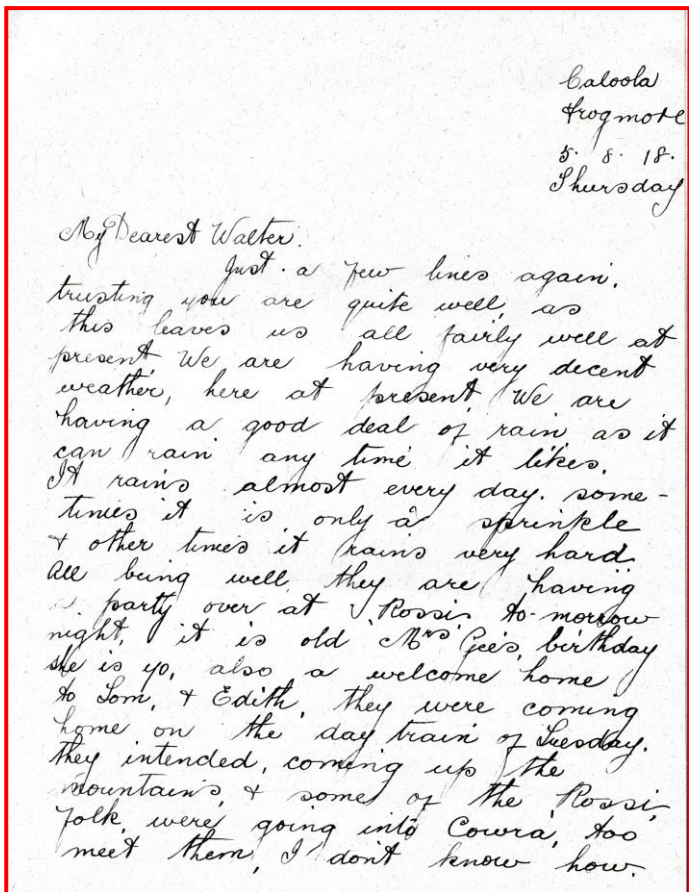 Caloola
Frogmore
5. 8. 18.
Thursday
My Dearest Walter.
Just. a few lines again,
trusting you are quite well, as
this leaves us all fairly well at
present, We are having very decent
weather, here at present, We are
having a good deal of rain as it
can rain any time it likes.
It rains almost every day. some-
times it is only a sprinkle
& other times it rains very hard.
All being well, they are having
a party over at Rossi, to-morrow
night, it is old Mrs Gee's, birthday
she is 70, also a welcome home
to Tom, & Edith, they were coming
home on the day train of Tuesday.
they intended, coming up the
mountains, & some of the Rossi,
folk, were going into Cowra, too
meet them, I don't know how.